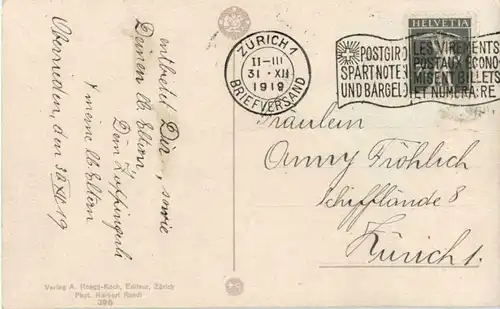 entbietet Dir, sowie
Deinen lb. Eltern,
Dein
& meine lb Eltern
Oberrieden, den 31. XII. 19
ZÜRICH 1
II-III
31. XII
1919
BRIEFVERSAND
HELVETIA
POSTGIRO
SPART NOTEN
UND BARGELD
LES VIREMENTS
POSTAUX ECONO-
MISENT BILLETS
ET NUMERAIRE
Fräulein
Anny Fröhlich
Schifflände 8
Zürich 1.
Verlag A. Ruegg-Koch, Editeur, Zürich
Phot. Herbert Ruedi
396